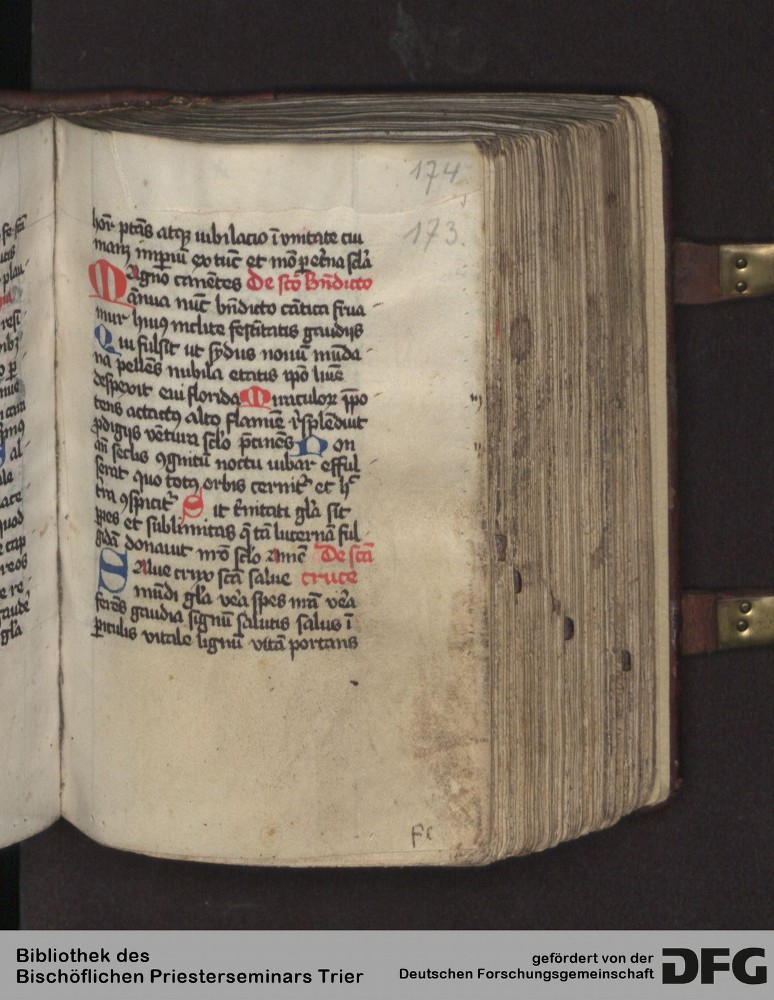 174
173.
hoñ ptãs atqꝫ iubilacio ĩ vnitate cui
manꝫ impiũ ex tũc et mõ p et̃na scl̃a
Magno canẽtes De sc̃o Bñdicto
ãnua nũc bñdicto cãtica frua
mur huiꝰ inclite festĩtatis gaudijs
Qui fulsit ut sydus nouũ mũda
na pellẽs nubila etatis ip̃o limẽ
despexit eui florida Miraculoꝝ
tens alto flamĩe rͥsplẽduit
ꝓdigijs vẽtura sclo Non
secl̃is ꝯgnitũ noctu iubar efful
serat quo totꝰ orbis cernitͬ et
ꝯspicitͬ Sit t̃nitati gl̃a sit
ꝑpes et sublimitas q̃ tã lucernã ful
gidã donauit nr̃o sclo amẽ De sc̃a
Salue crux sc̃a salue cruce
mũdi gl̃a vẽa spes nr̃a vẽa
ferẽs gaudia signũ salutis salus ĩ
ꝑiculis vitale lignũ vitã portans
Bibliothek des
Bischöflichen Priesterseminars Trier
gefördert von der
Deutschen Forschungsgemeinschaft
DFG